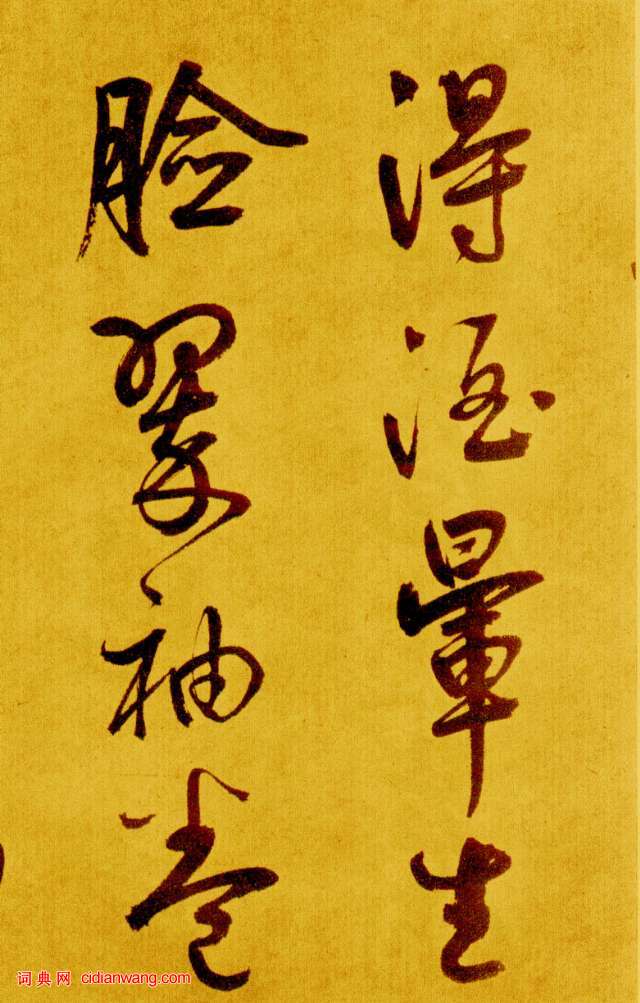 得酒暈生
臉翠袖卷
词典网 cidianwang.com